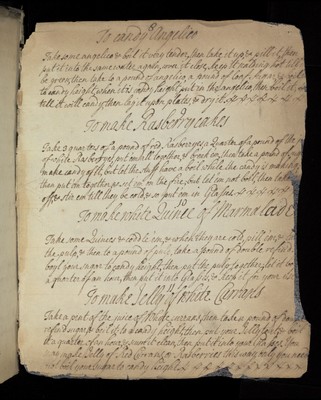 To candy Angelico
Take some angelico & boil it very tender, then take it up & pill it then
put it into the same water again, cover it close, keep it scalding hot till
be green, then take to a pound of angelico a pound of loaf sugar &
to candy height, when it is candy height put in the angelico, then boil it
till it will candy, then lay it upon plates, & dry it
To make Rasberry cakes
Take 3 quarters of a pound of red Rasberyes, a Quarter of a pound of the
of white Rasberyes, put em all together, & break em, then take a pound of
make candy of it, but let the stuff have a boil while the candy is making
then put em together, & set em on the fire, but let em not boil, then take
off, & stir em till they be cold, & so put em in Glasses
To make white Quince of Marmolade
Take some Quinces & codle em, & when they are cold, pill em,
the pulp, & then to a pound of pulp, take a pound of double refin'd
boyl your suger to candy height, then put the pulp together, let it boil
a quarter of an hour, then put it into Glasses, & keep it for your use
To make Jelly of White Currans
Take a pint of the juice of White Currens, then take a pound of double
refin'd suger & boil it to a candy height, then put your Jelly to it, & boil
it a quarter of an hour, & scum it clean, then put it into your Glasses. You
may make Jelly of Red Currans & Rasberries this way, only you need
not boil your suger to candy height